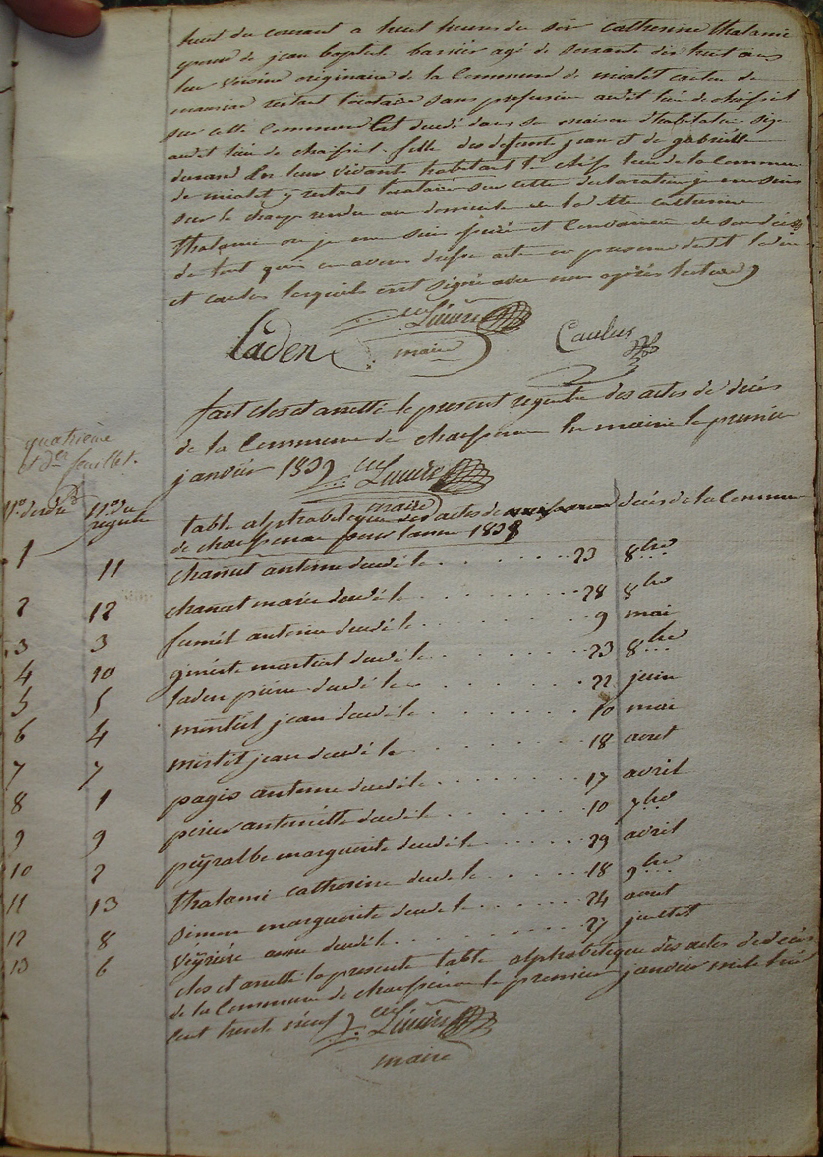 huit du courant a huit heures du soir catherine thalami
epouse de jean baptiste barrier agé de soixante dix huit ans
leur voisine originaire de la Commune de mialet canton de
mauriac restant locataire sans profession audit lieu de
sur cette Commune Est decedé dans sa maison d'habitation sise
audit lieu de fille des defunts jean et de gabrielle
durand En leur vivants habitant le chef lieu de la Commune
de mialet y restant locataire sur cette declaration je me suis
sur le champ rendu au domicile de la dite catherine
thalami ou je me suis assuré et Convaincu de son décès
de tout quoi en avons dressé acte en presence dudit laden
et caulus lesquels ont signé avec nous après lecture
Laden maire Caulus
fait clos et arretté le present registre des actes de décès
de la Commune de En mairie le premier
janvier 1839
maire
quatrième
et der feuillet.
N° d'ordre N° du registre
table alphabetique des actes de décès de la Commune
de pour l'année 1838
1 11 chanut antoine decedé le 23 8bre
2 12 chanut marie decedé le 28 8bre
3 3 fumel antoine decedé le 9 mai
4 10 martial decedé le 23 8bre
5 5 laden pierre decedé le 22 juin
6 4 jean decedé le 10 mai
7 7 jean decedé le 18 aout
8 1 pagis antoine decedé le 17 avril
9 9 antoinette decedé le 10 7bre
10 2 peyralbe marguerite decedé le 29 avril
11 13 thalami catherine decedé le 18 9bre
12 8 simon marguerite decedé le 24 aout
13 6 veÿriere anne decedé le 27 juillet
clos et arretté la presente table alphabétique des actes de décès
de la Commune de le premier janvier mil huit
cent trente neuf
maire